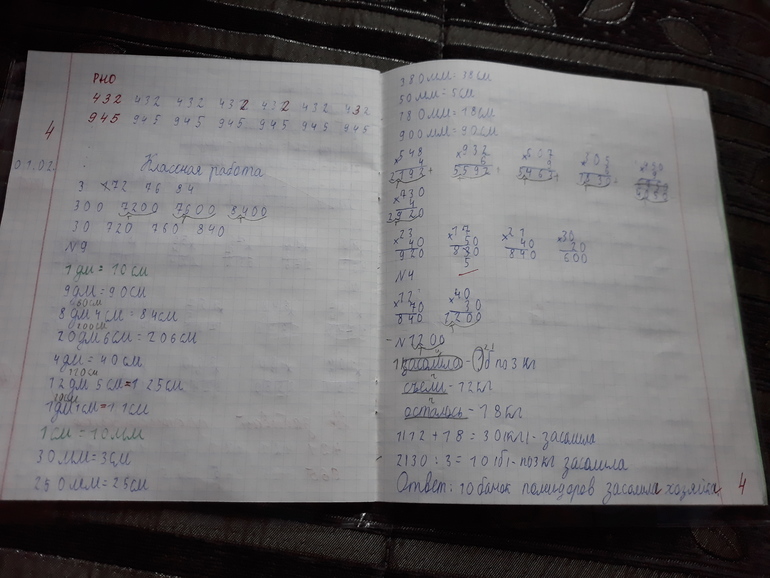 РНО
432 432 432 432 432 432 432
945 945 945 945 945 945 945
4
01.02.
Классная работа
3 72 76 84
300 7200 7600 8400
30 720 760 840
N9
1дм = 10см
9дм = 90см
80см
8дм 4см = 84см
200см
20дм 6см = 206см
4дм = 40см
120см
12дм 5см = 125см
1дм 1см = 11см
1см = 10мм
30мм = 3см
250мм = 25см
380мм = 38см
50мм = 5см
180мм = 18см
900мм = 90см
×548 ×932
4 6
2192 5592
×730
4
2920
×23 ×17 ×21 ×30
40 50 40 20
920 840 600
N4
×40
70 30
840 1200
засолила - б по 3 кг
съели - 12кг
осталось - 18кг
1) 12 + 18 = 30(кг) - засолила
2) 30 : 3 = 10(б) - по 3 кг засолила
Ответ: 10 банок помидоров засолила хозяйка.
4